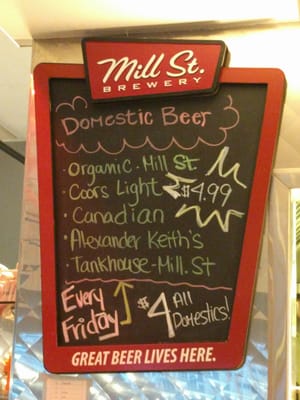 Mill St.
BREWERY
Domestic Beer
· Organic · Mill St.
· Coors Light $4.99
· Canadian
· Alexander Keith's
· Tankhouse - Mill. St
Every Friday $4 All Domestics!
GREAT BEER LIVES HERE.